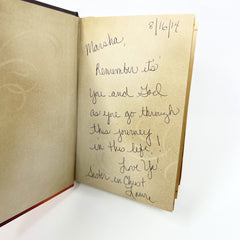 8/16/14
Marsha,
Remember it's
you and God
as you go through
this journey
in this life!!
Love Ya!
Sister in Christ